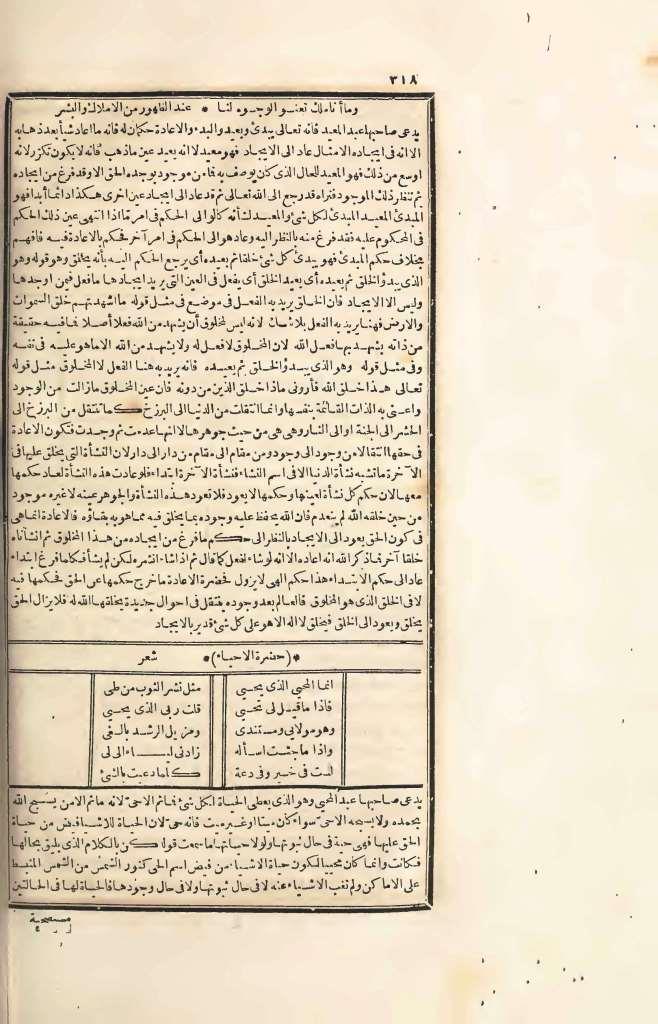 ٣١٨
وما أنا ملك تعنو الوجوه لنا * عند الظهور من الاملاك والبشر
يدعى صاحبها عبد المعيد فانه تعالى يبدئ ويعيد والبدء والاعادة حكمان له فانه ما اعاد شيأ بعد ذهابه
الا انه فى ايجاده الامثال عاد الى الايجاد فهو معيد لا انه يعيد عين ماذهب فانه لا يكون تكرر لانه
اوسع من ذلك فهو المعيد للحال الذى كان يوصف به فمامن موجود يوجده الحق الا وقد فرغ من ايجاده
ثم تنظر ذلك الموجود فتراه قد رجع الى الله تعالى ثم قد عاد الى ايجاد عين اخرى هكذا دائما أبدا فهو
المبدئ المعيد المبدئ لكل شئ والمعيد لشأنه كالوالى الحكم فى امر تما اذا انتهى عين ذلك الحكم
فى المحكوم عليه فقد فرغ منه بالنظر اليه وعاد هو الى الحكم فى امر آخر فحكم بالاعادة فيه فافهم
بخلاف حكم المبدئ فهو يبدئ كل شئ خلقا ثم يعيده أى يرجع الحكم اليه بأنه يخلق وهو قوله وهو
الذى يبدؤ الخلق ثم يعيده أى يعيد الخلق أى يفعل فى العين التى يريد ايجادها ما فعل فيمن اوجدها
وليس الا الايجاد فان الخلق يريد به الفعل فى موضع فى مثل قوله ما اشهدتهم خلق السموات
والارض فهنا يريد به الفعل بلا شك لانه ليس لمخلوق أن يشهد من الله فعلا أصلا فما فيه حقيقة
من ذاته يشهد بها فعل الله لان المخلوق لا فعل له ولا يشهد من الله الا ما هو عليه فى نفسه
وفى مثل قوله وهو الذى يبدؤ الخلق ثم يعيده فانه يريد به هنا الفعل لا المخلوق مثل قوله
تعالى هذا خلق الله فأرونى ماذا خلق الذين من دونه فان عين المخلوق مازالت من الوجود
واعنى به الذات القائمة بنفسها وانما انتقلت من الدنيا الى البرزخ كما تنتقل من البرزخ الى
الحشر الى الجنة او الى النار وهى هى من حيث جوهرها لا انها عدمت ثم وجدت فتكون الاعادة
فى حقها انتقالا من وجود الى وجود ومن مقام الى مقام من دار الى دار لان النشأة التى يخلق عليها فى
الآخرة ما تشبه نشأة الدنيا الا فى اسم النشاء فنشأة الآخرة ابتداء فلو عادت هذه النشأة لعاد حكمها
معها لان حكم كل نشأة لعينها وحكمها لا يعود فلا تعود هذه النشأة والجوهر عينه لا غيره موجود
من حين خلقه الله لم ينعدم فان الله يحفظ عليه وجوده بما يخلق فيه مما هو به بقاؤه فالاعادة انما هى
فى كون الحق يعود الى الايجاد بالنظر الى حكم ما فرغ من ايجاده من هذا المخلوق ثم انشأناه
خلقا آخر فما ذكر الله انه اعاده الا انه لو شاء لفعل كما قال ثم اذا شاء انشره لكن لم يشأ فكلما فرغ ابتداء
عاد الى حكم الابتداء هذا حكم الهى لا يزول فحضرة الاعادة ما خرج حكمها عن الحق فحكمها فيه
لا فى الخلق الذى هو المخلوق فالعالم بعد وجوده ينتقل فى احوال جديدة يخلقها الله له فلا يزال الحق
يخلق ويعود الى الخلق فيخلق لا اله الا هو على كل شئ قدير بالايجاد
*(حضرة الاحياء)* شعر
انما المحيى الذى يحيى مثل نشر الثوب من طى
فاذا ما قيل لى تحيى قلت ربى الذى يحيى
وهو مولاى ومستندى ومزيل الرشد بالغى
واذا ما جئت اسأله زادنى لـــاء الى لى
لست فى خير وفى دعة كلما دعيت بالشئ
يدعى صاحبها عبد المحيى وهو الذى يعطى الحياة لكل شئ فما ثم الا حى لانه ما ثم الا من يسبح الله
بحمده ولا يسبحه الا حى سواء كان ميتا او غير ميت فانه حى لان الحياة للاشياء فيض من حياة
الحق عليها فهى حية فى حال ثبوتها ولولا حياتها ما سمعت قوله كن بالكلام الذى يليق بجلاله
فكانت وانما كان محييا لكون حياة الاشياء من فيض اسم الحى كنور الشمس من الشمس المنبسط
على الاماكن ولم تغب الاشياء عنه لا فى حال ثبوتها ولا فى حال وجودها فالحياة لها فى الحالتين
مستصحبة